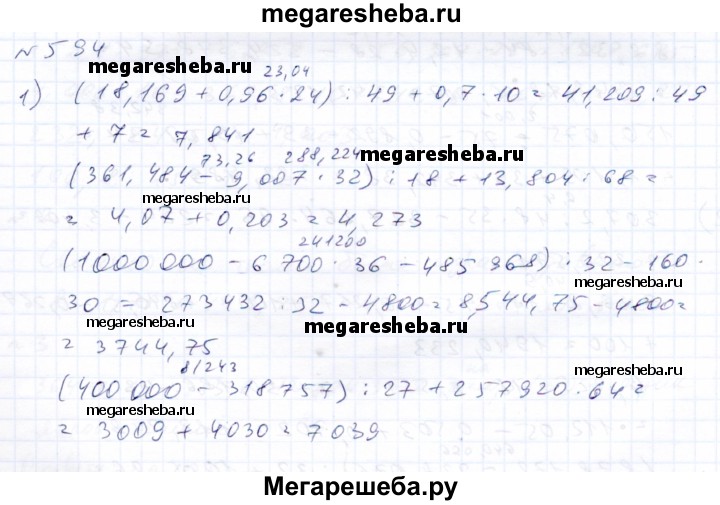 megaresheba.ru
№ 594
megaresheba.ru
23,04
1) (18,169 + 0,96 · 24) : 49 + 0,7 · 10 = 41,209 : 49
+ 7 = 7,841
73,26 288,224
megaresheba.ru
(361,484 - 9,007 · 32) : 18 + 13,804 : 68 =
megaresheba.ru megaresheba.ru
= 4,07 + 0,203 = 4,273
241200
(1000 000 - 6 700 · 36 - 485 368) : 32 - 160 ·
30 = 273432 : 32 - 4800 = 8544,75 - 4800 =
megaresheba.ru megaresheba.ru megaresheba.ru
= 3744,75
81243
(400 000 - 318 757) : 27 + 257920 : 64 =
megaresheba.ru megaresheba.ru
= 3009 + 4030 = 7039
Мегарешеба.ру